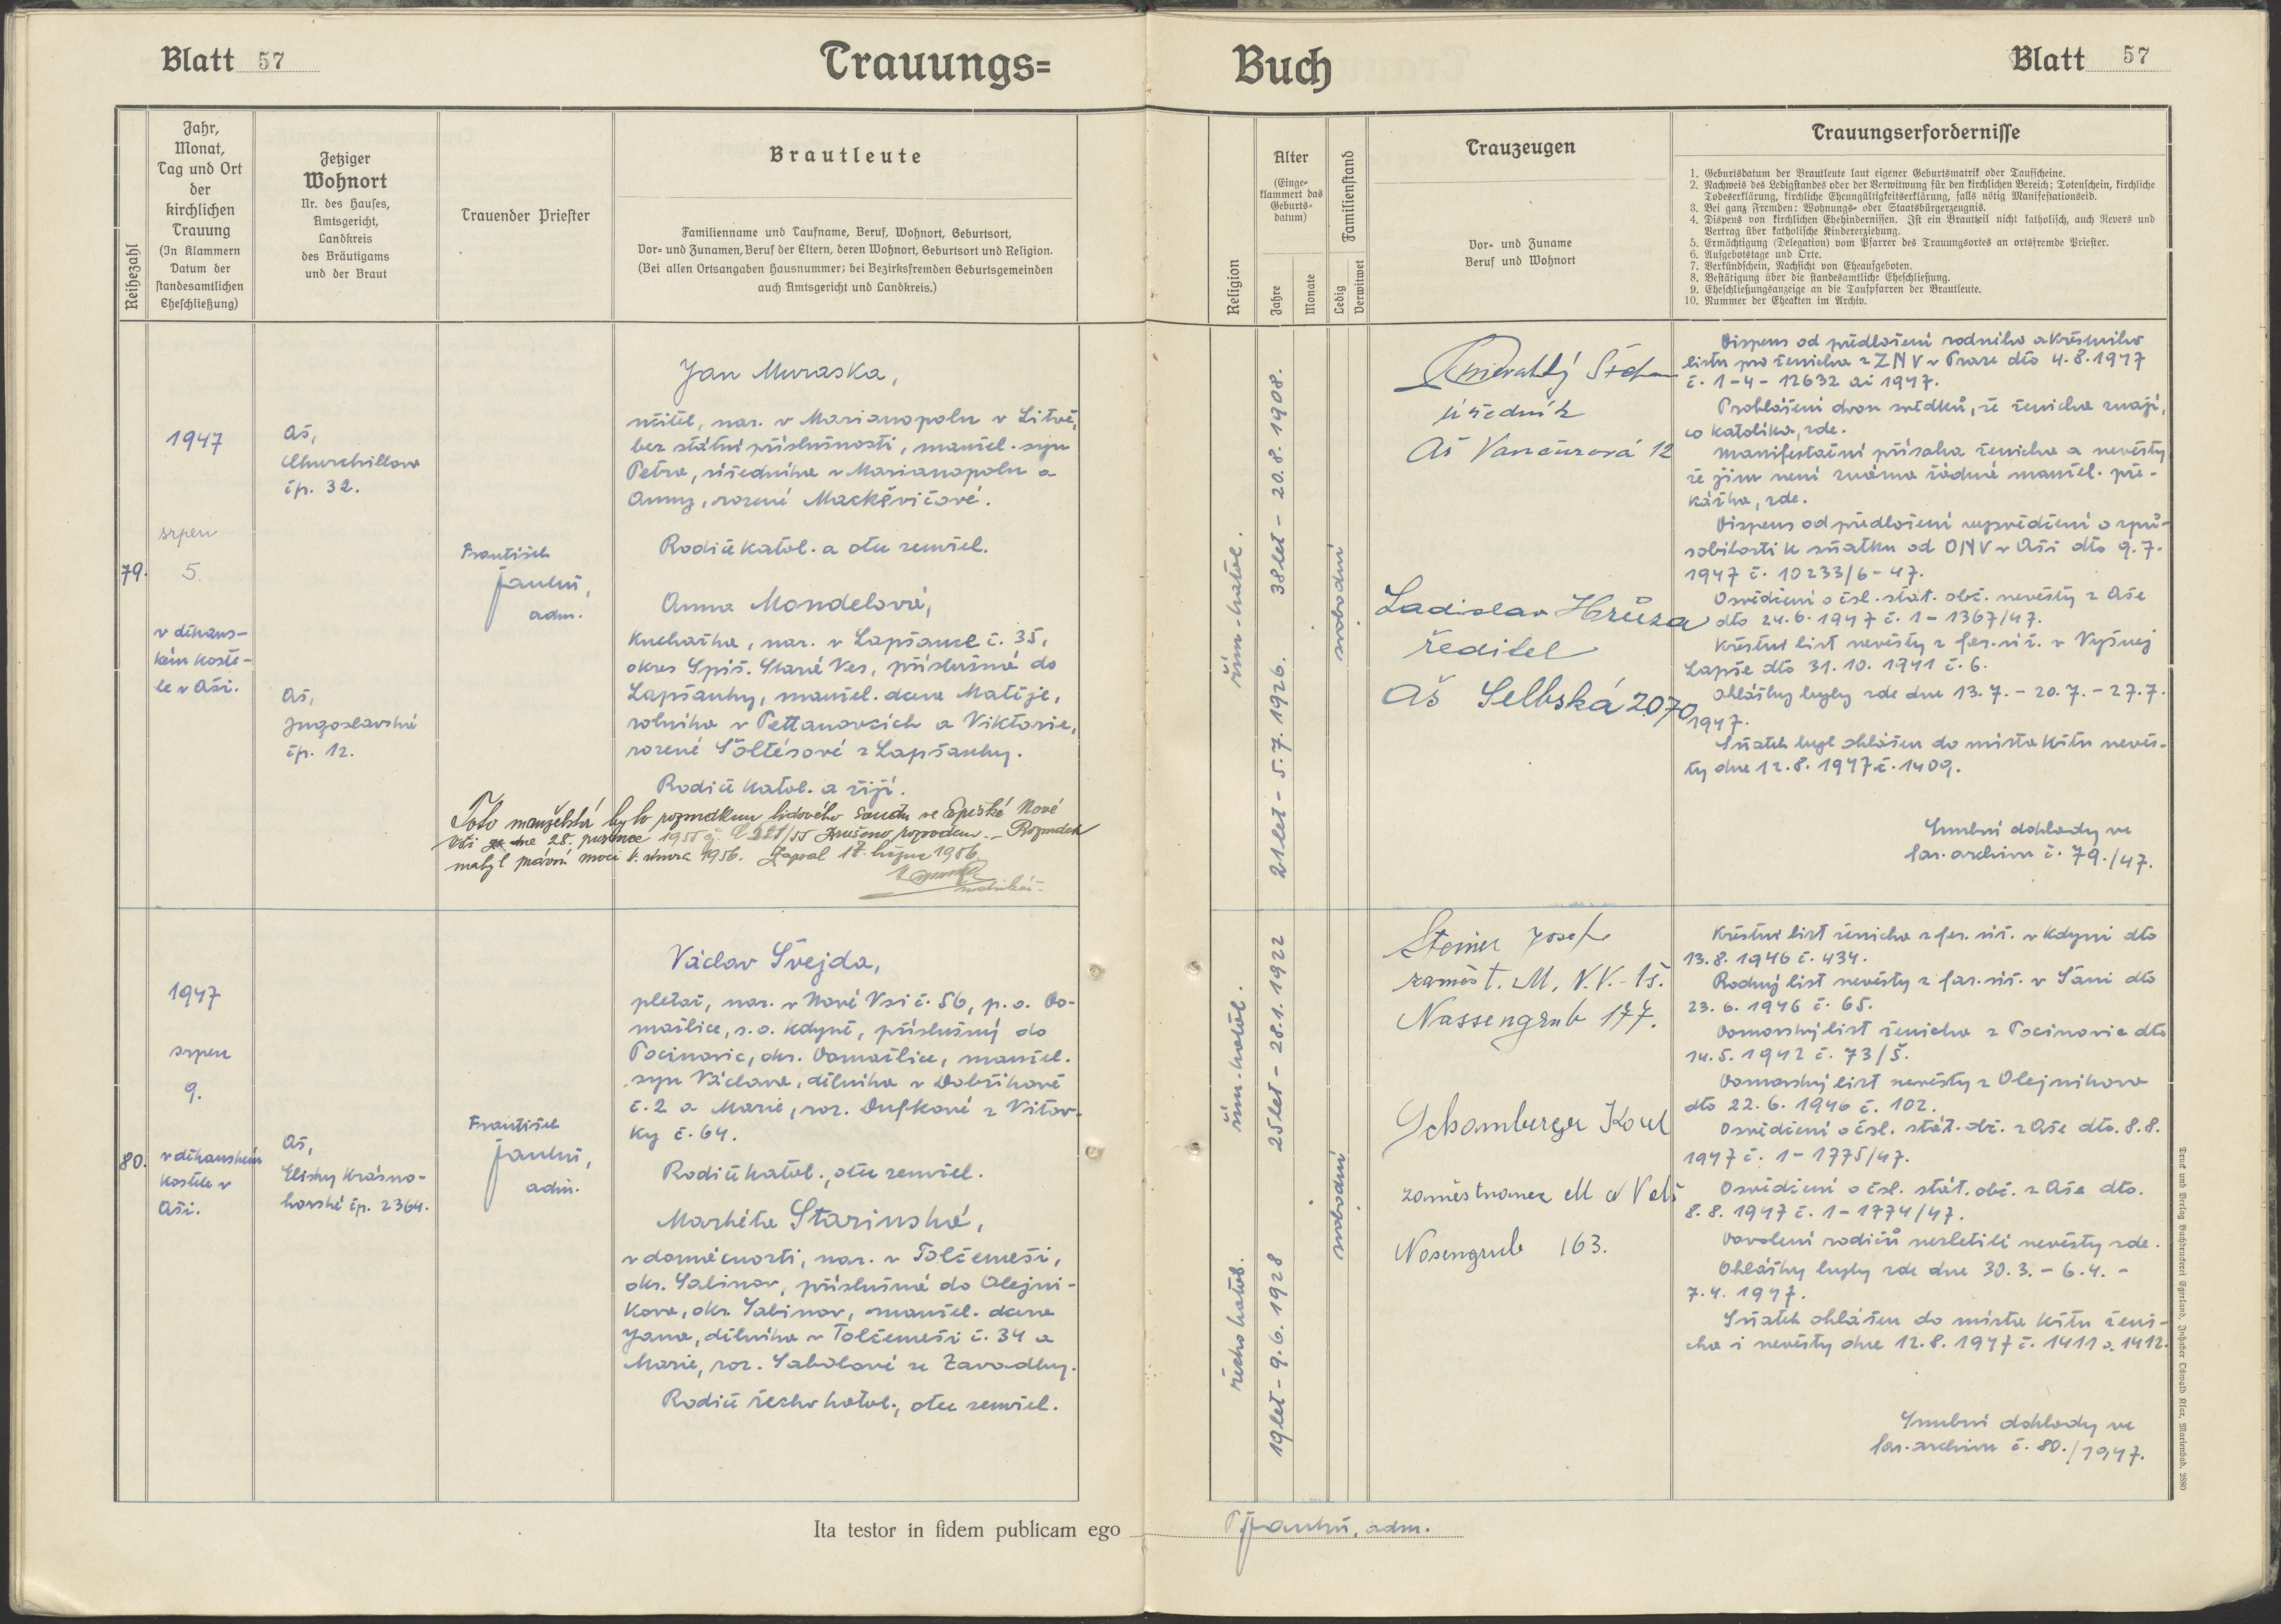 Blatt 57
Trauungs=
Reihezahl
Jahr,
Monat,
Tag und Ort
der
kirchlichen
Trauung
(In Klammern
Datum der
standesamtlichen
Eheschließung)
Jetziger
Wohnort
Nr. des Hauses,
Amtsgericht,
Landkreis
des Bräutigams
und der Braut
Trauender Priester
Brautleute
Familienname und Taufname, Beruf, Wohnort, Geburtsort,
Vor- und Zunamen, Beruf der Eltern, deren Wohnort, Geburtsort und Religion.
(Bei allen Ortsangaben Hausnummer; bei Bezirksfremden Geburtsgemeinden
auch Amtsgericht und Landkreis.)
79.
1947
srpen
5.
v děkans-
kém koste-
le v Aši.
Aš,
Churchillova
čp. 32.
Aš,
Jugoslavská
čp. 12.
František
Janků,
adm.
Jan Muraska,
učitel, nar. v Marianopolu v Litvě,
bez státní příslušnosti, manžel. syn
Petra, úředníka v Marianopolu a
Anny, rozené Mackěvičové.
Rodiče katol. a otec zemřel.
Anna Mondelová,
kuchařka, nar. v Lapšance č. 35,
okres Spiš. Stará Ves, příslušná do
Lapšanky, manžel. dcera Matěje,
rolníka v a Viktorie,
rozené Šoltésové z Lapšanky.
Rodiče katol. a žijí.
Toto manželství bylo rozsudkem lidového soudu ve Spišské Nové
Vsi ze dne 28. prosince 1955 č. C 521/55 zrušeno rozvodem. - Rozsudek
nabyl právní moci února 1956. Zapsal 17. 1956.
matrikář.
80.
1947
srpen
9.
v děkanském
kostele v
Aši.
Aš,
Elišky Krásno-
horské čp. 2364.
František
Janků,
adm.
Václav Švejda,
pletař, nar. v Nové Vsi č. 56, p. o. Do-
mažlice, s. o. Kdyně, příslušný do
Pocinovic, okr. Domažlice, manžel.
syn Václava, dělníka v Dobříkově
č. 2 a Marie, roz. Dufkové z Vítov-
ky č. 64.
Rodiče katol., otec zemřel.
Markéta Starinská,
v domácnosti, nar. v Tolčemeši,
okr. Sabinov, příslušná do Olejní-
kova, okr. Sabinov, manžel. dcera
Jana, dělníka v Tolčemeši č. 34 a
Marie, roz. Sabolové ze Závadky.
Rodiče řecko katol., otec zemřel.
Ita testor in fidem publicam ego
Buch
Blatt 57
Religion
Alter
(Einge-
klammert das
Geburts-
datum)
Jahre
Monate
Familienstand
Ledig
Verwitwet
Trauzeugen
Vor- und Zuname
Beruf und Wohnort
Trauungserfordernisse
1. Geburtsdatum der Brautleute laut eigener Geburtsmatrik oder Taufscheine.
2. Nachweis des Ledigstandes oder der Verwitwung für den kirchlichen Bereich: Totenschein, kirchliche
Todeserklärung, kirchliche Eheungültigkeitserklärung, falls nötig Manifestationseid.
3. Bei ganz Fremden: Wohnungs- oder Staatsbürgerzeugnis.
4. Dispens von kirchlichen Ehehindernissen. Ist ein Brautteil nicht katholisch, auch Revers und
Vertrag über katholische Kindererziehung.
5. Ermächtigung (Delegation) vom Pfarrer des Trauungsortes an ortsfremde Priester.
6. Aufgebotstage und Orte.
7. Verkündschein, Nachsicht von Eheaufgeboten.
8. Bestätigung über die standesamtliche Eheschließung.
9. Eheschließungsanzeige an die Taufpfarren der Brautleute.
10. Nummer der Eheakten im Archiv.
řím.-katol.
38 let - 20. 8. 1908.
21 let - 5. 7. 1926.
svobodní
úředník
Aš Vančurová 12
Ladislav Hrůza
ředitel
Aš Selbská 2070
Dispens od předložení rodného a křestního
listu pro ženicha z ZNV v Praze dto 4. 8. 1947
č. 1-4-12632 ai 1947.
Prohlášení dvou svědků, že ženicha znají,
co katolíka, zde.
Manifestační přísaha ženicha a nevěsty
že jim není známa žádná manžel. pře-
kážka, zde.
Dispens od předložení vysvědčení o způ-
sobilosti k sňatku od ONV v Aši dto 9. 7.
1947 č. 10233/6-47.
Osvědčení o čsl. stát. obč. nevěsty z Aše
dto 24. 6. 1947 č. 1-1367/47.
Křestní list nevěsty z far. úř. v Vyšnej
Lapše dto 31. 10. 1941 č. 6.
Ohlášky byly zde dne 13. 7. - 20. 7. - 27. 7.
1947.
Sňatek byl ohlášen do místa křtu nevěs-
ty dne 12. 8. 1947 č. 1409.
Snubní doklady ve
far. archivu č. 79./47.
řím.-katol.
řecko katol.
25 let - 28. 1. 1922
19 let - 9. 6. 1928
svobodní
Steiner Josef
zaměst. M. N. V. Aš.
Nassengrub 177.
Schamberger Karel
zaměstnanec M N V Aš
Nosengrub 163.
Křestní list ženicha z far. úř. v Kdyni dto
13. 8. 1946 č. 434.
Rodný list nevěsty z far. úř. v Šáni dto
23. 6. 1946 č. 65.
Domovský list ženicha z Pocinovic dto
14. 5. 1942 č. 73/Š.
Domovský list nevěsty z Olejníkova
dto 22. 6. 1946 č. 102.
Osvědčení o čsl. stát. obč. z Aše dto. 8. 8.
1947 č. 1-1775/47.
Osvědčení o čsl. stát. obč. z Aše dto.
8. 8. 1947 č. 1-1774/47.
Dovolení rodičů nezletilé nevěsty zde.
Ohlášky byly zde dne 30. 3. - 6. 4. -
7. 4. 1947.
Sňatek ohlášen do místa křtu ženi-
cha i nevěsty dne 12. 8. 1947 č. 1411 a 1412.
Snubní doklady ve
far. archivu č. 80./1947.
Janků, adm.
Druck und Verlag Buchdruckerei Egerland, Inhaber Oswald Klar, Marienbad. 2880